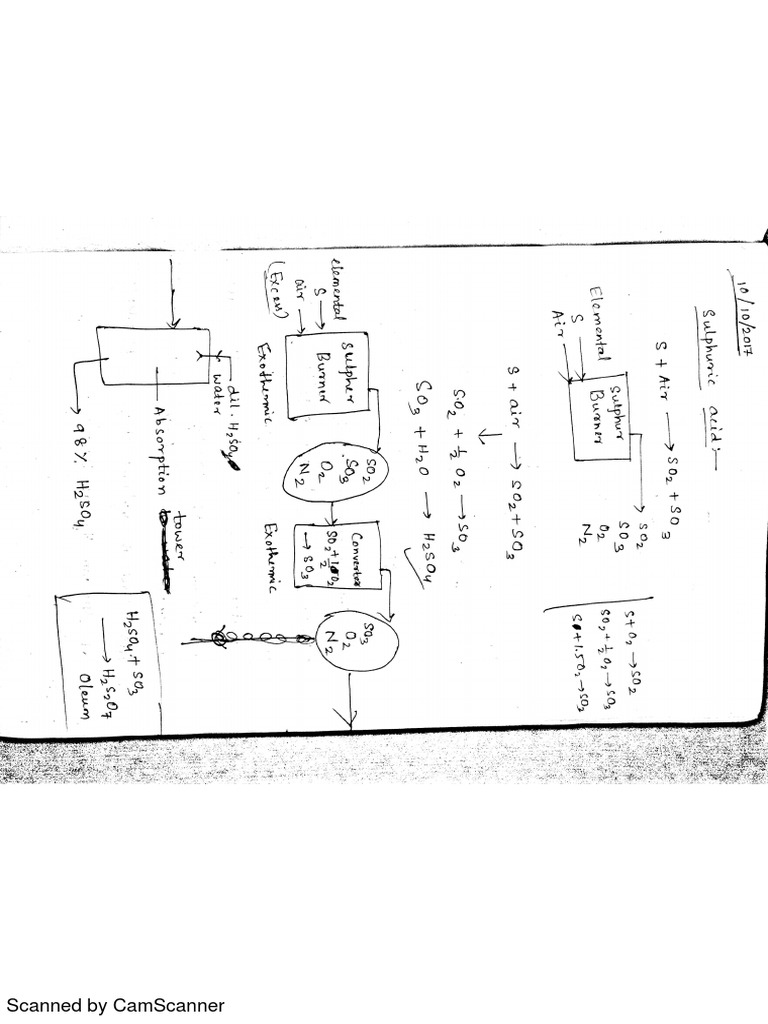 10/10/2017
Sulphuric acid:-
S + Air → SO2 + SO3
Elemental
S
Air
Sulphur
Burner
SO2
SO3
O2
N2
S+O2 → SO2
SO2 + ½ O2 → SO3
S+1.5O2 → SO3
S + air → SO2 + SO3
↓
SO2 + ½ O2 → SO3
SO3 + H2O → H2SO4
elemental
S
air
(Excess)
Sulpher
Burner
Exothermic
SO2
SO3
O2
N2
Converter
SO2 + 1/2 O2
→ SO3
Exothermic
SO3
O2
N2
dil. H2SO4
water
Absorption tower
98% H2SO4
H2SO4 + SO3
→ H2S2O7
Oleum
Scanned by CamScanner